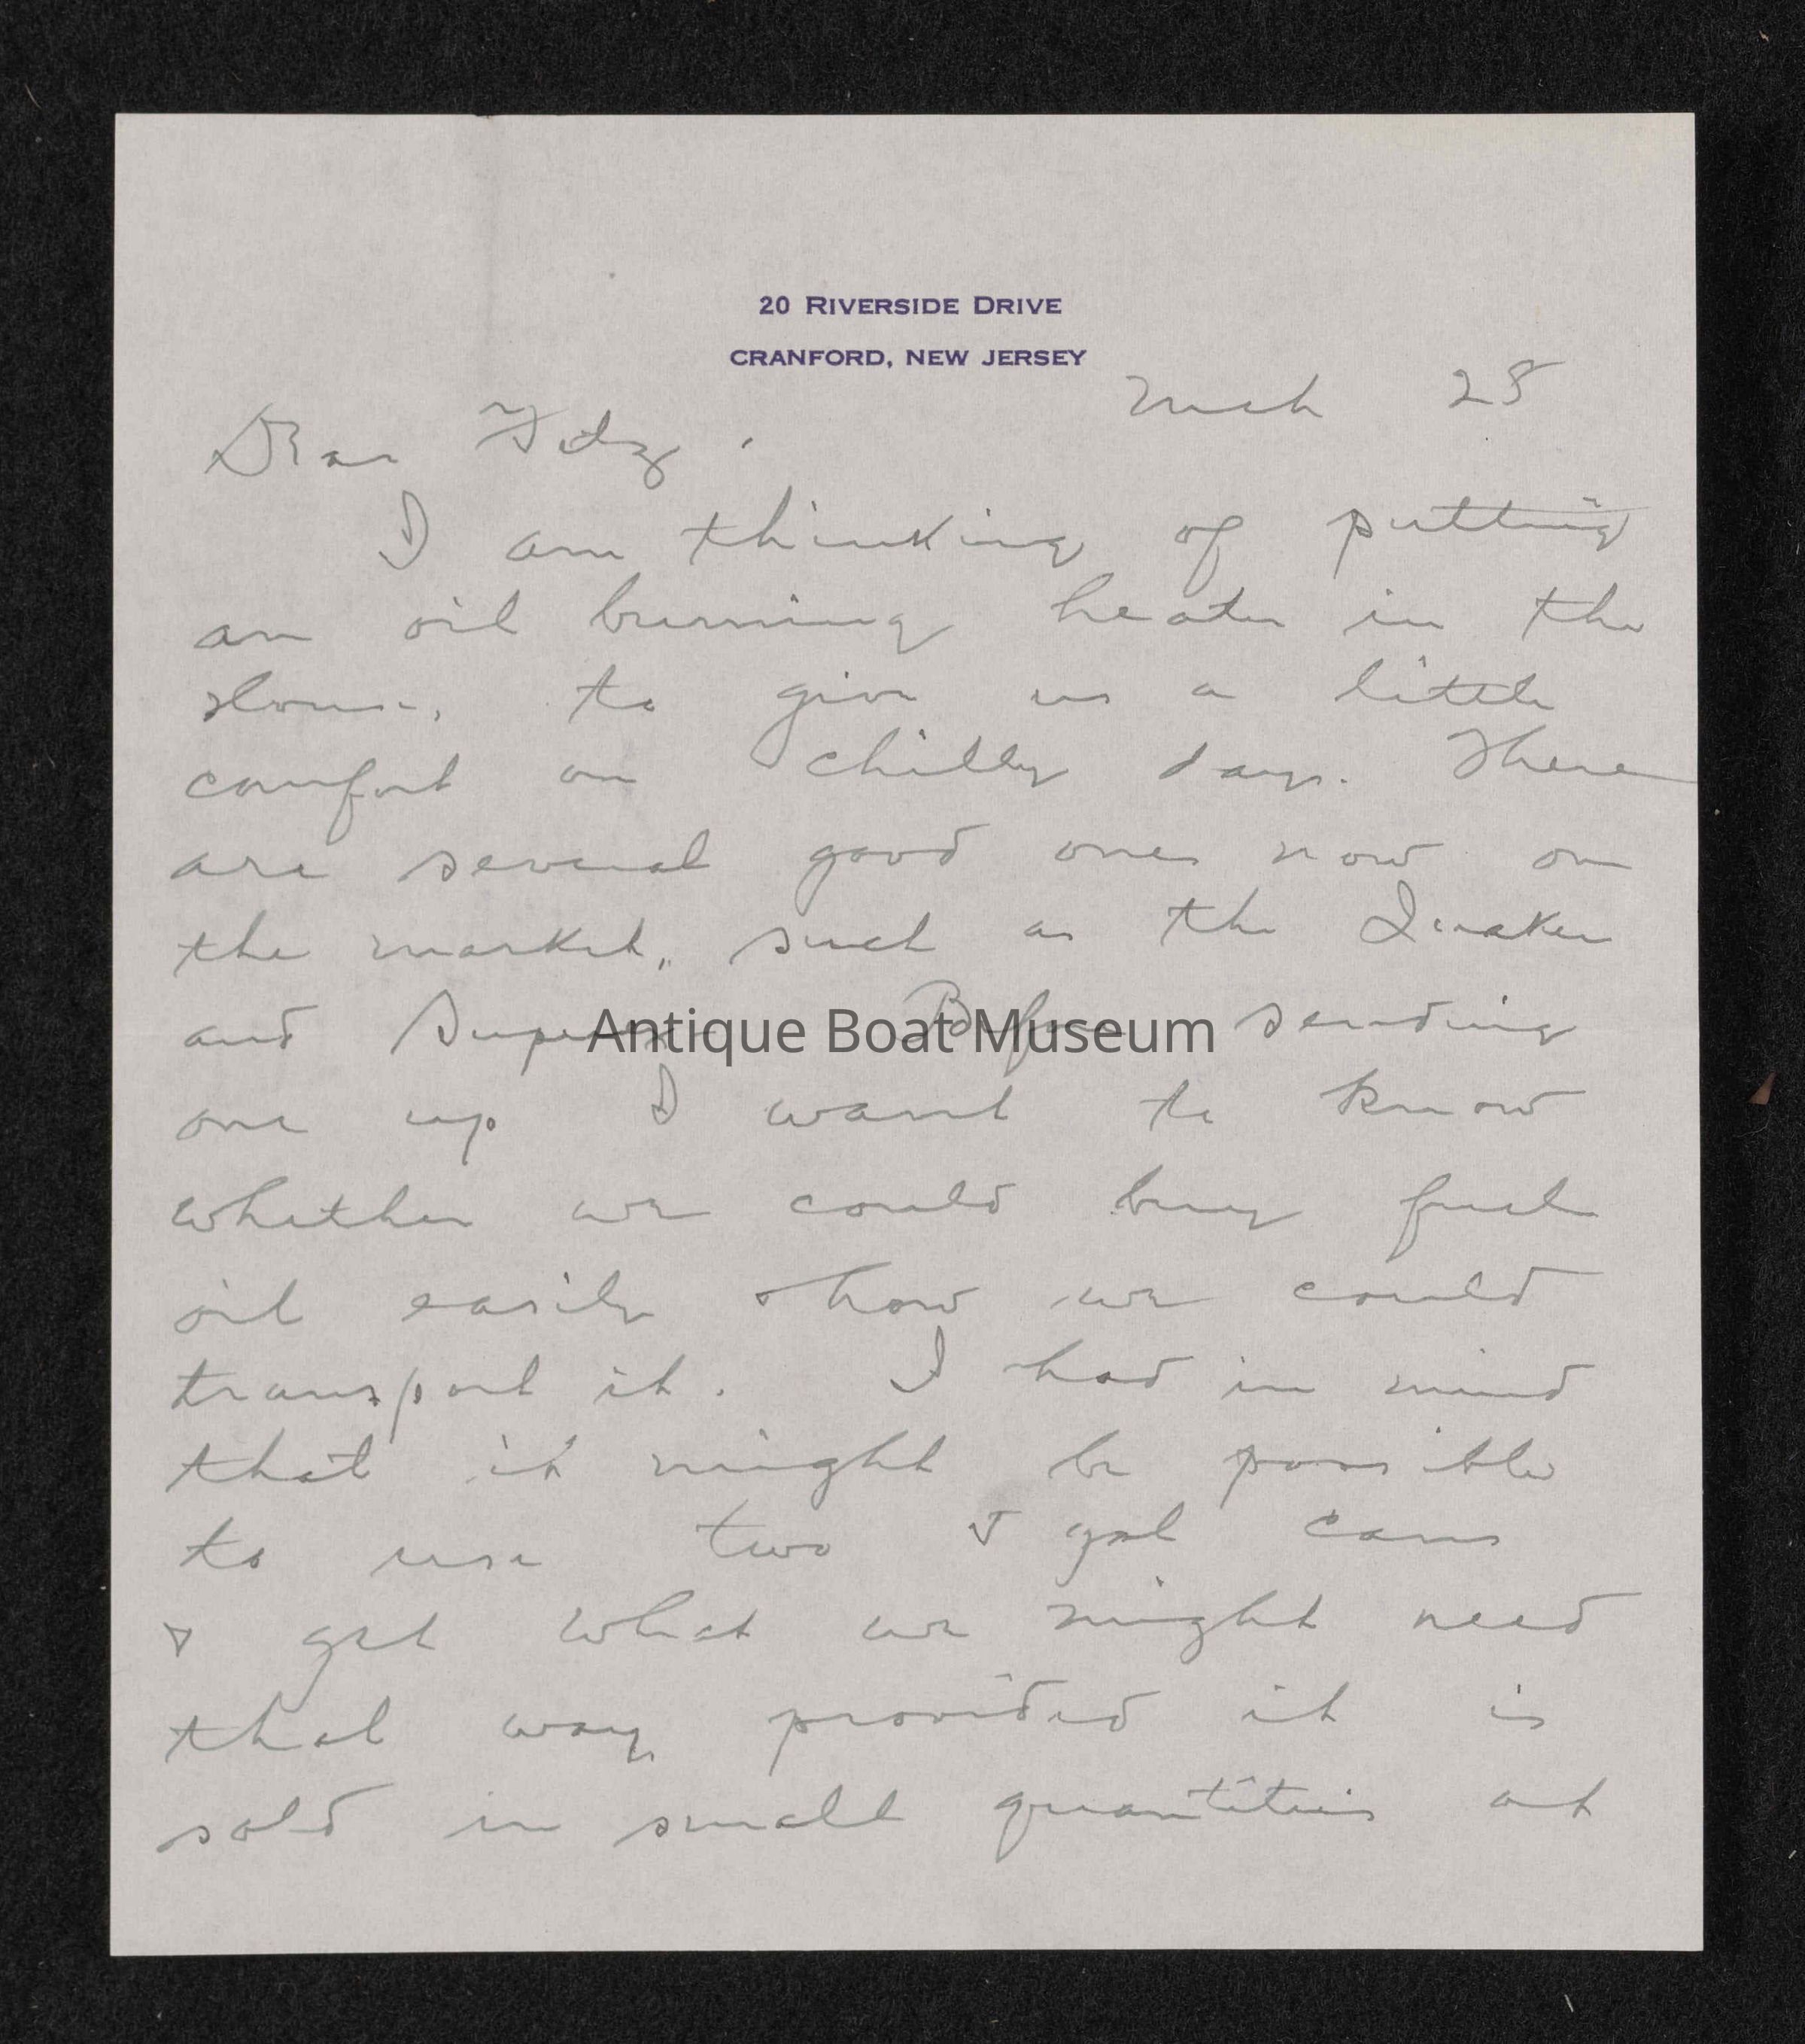 20 RIVERSIDE DRIVE
CRANFORD, NEW JERSEY
Mch 25
Dear Fitz,
I am thinking of putting
an oil burning heater in the
House, to give us a little
comfort on chilly days. There
are several good ones now on
the market, such as the Quaker
and Superex. Before sending
Antique Boat Museum
one up I want to know
whether we could buy fuel
oil easily & how we could
transport it. I had in mind
that it might be possible
to use two 5 gal cans
& get what we might need
that way, provided it is
sold in small quantities at